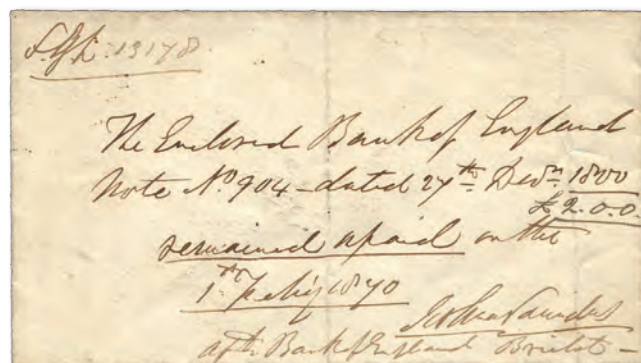 13178
The Enclosed Bank of England
Note No 904 - dated 27th Decr. 1800
£2.0.0
remained upaid on the
1st Feby 1870
Saunders
of the Bank of England Bristol -